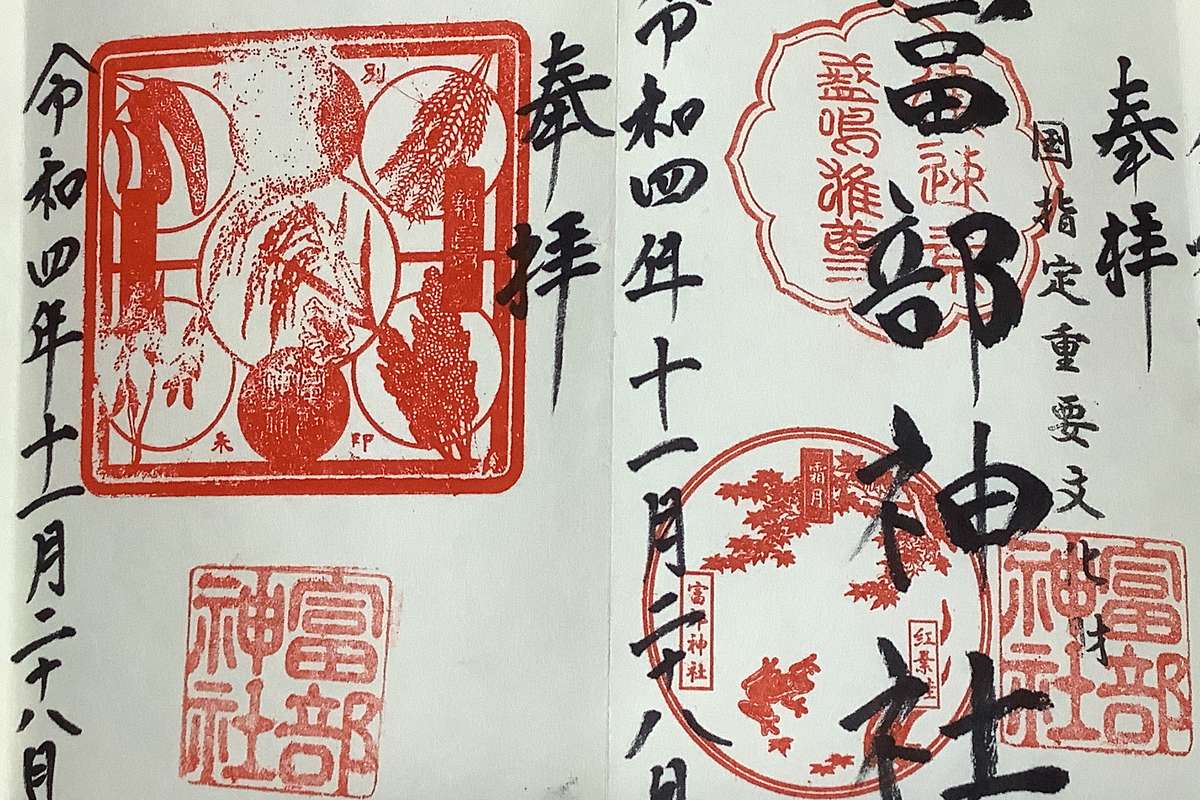 奉拝
国指定重要文化財
富部神社
富部神社
霜月
富部神社
令和四年十一月二十八日
奉拝
別
印
富部神社
令和四年十一月二十八日